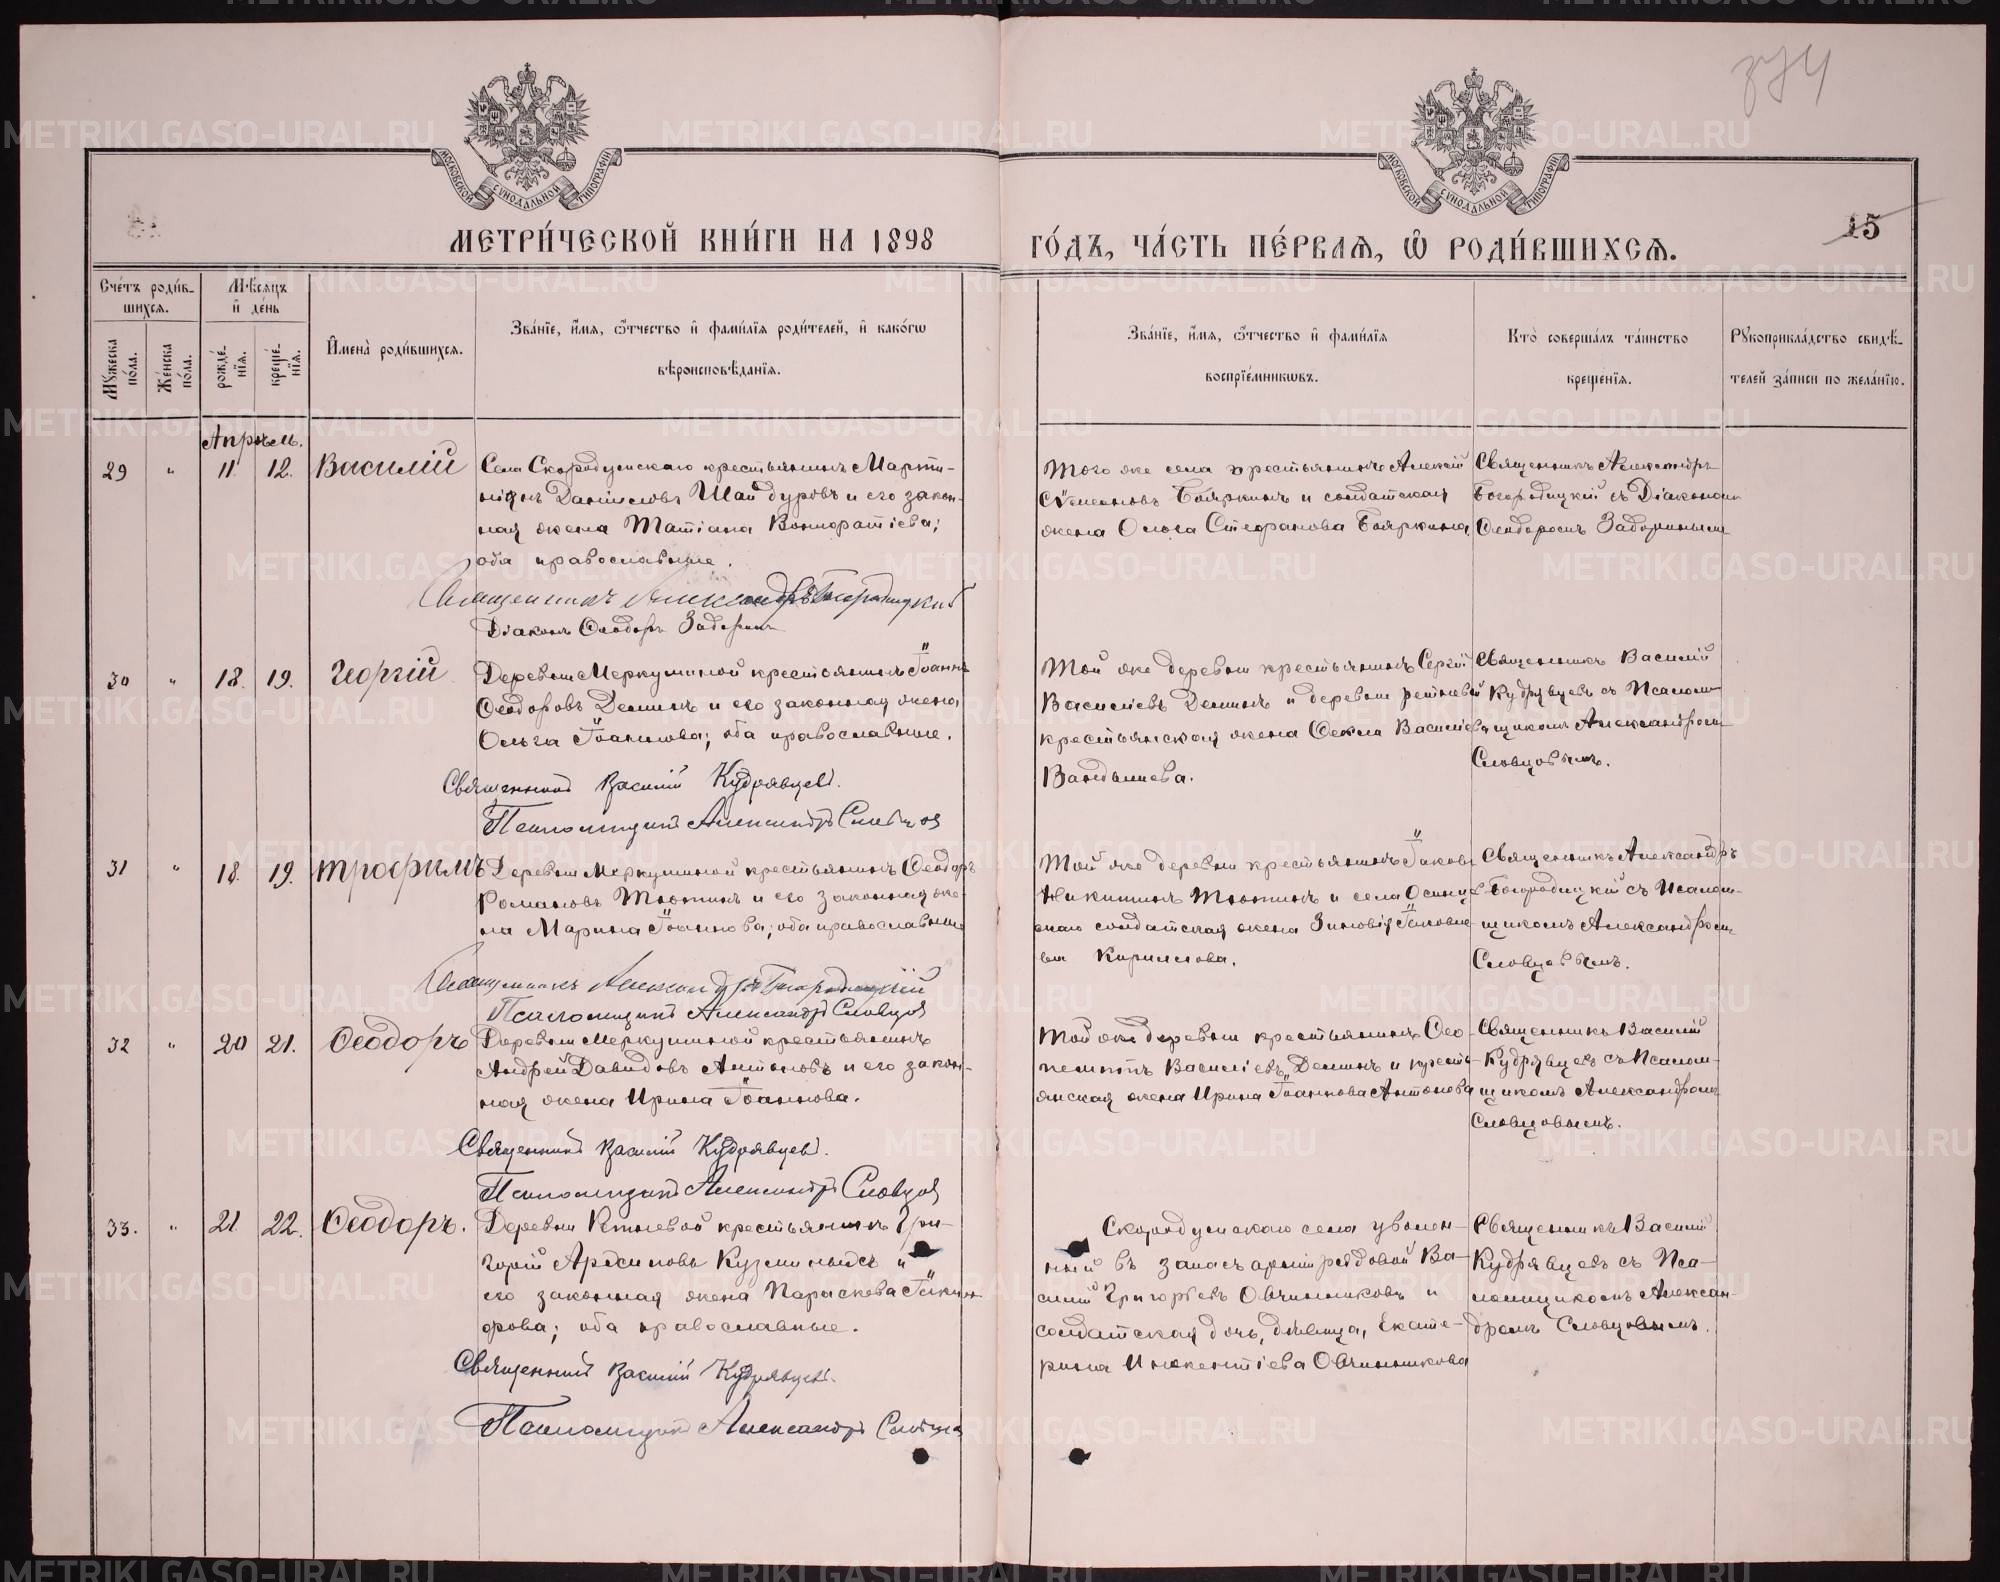 374
МОСКОВСКОЙ СѴНОДАЛЬНОЙ ТИПОГРАФІИ
МОСКОВСКОЙ СѴНОДАЛЬНОЙ ТИПОГРАФІИ
МЕТРИ́ЧЕСКОЙ КНИ́ГИ НА 1898
ГО́ДЪ, ЧА́СТЬ ПЕ́РВАѦ, Ѿ РОДИ́ВШИХСѦ.
15
Сче́тъ роди́в-
шихсѧ.
Мꙋжеска по́ла.
Же́нска по́ла.
Мѣ́сѧцъ и҆ де́нь
рожде́-
нїѧ.
креще́-
нїѧ.
И҆мена̀ роди́вшихсѧ.
Зва́нїе, и҆́мѧ, ѻ҆́тчество и҆ фами́лїѧ роди́телей, и҆ како́гѡ
вѣроисповѣ́данїѧ.
Зва́нїе, и҆́мѧ, ѻ҆́тчество и҆ фами́лїѧ
воспрїе́мникѡвъ.
Кто̀ соверша́лъ та́инство
креще́нїѧ.
Рꙋкоприкла́дство свидѣ́-
телей за́писи по жела́нїю.
Апрѣль.
29 " 11 12. Василій
Села Скородумскаго крестьянинъ Марти-
ніанъ Даніиловъ Шайдуровъ и его закон-
ная жена Татіана Кондратіева;
оба православные.
Священникъ Александръ Богородицкій
Діаконъ Ѳеодоръ Задоринъ
Того же села крестьянинъ Алексій
Сѵмеоновъ Бояркинъ и солдатская
жена Ольга Стефанова Бояркина
Священникъ Александръ
Богородицкій съ Діакономъ
Ѳеодоромъ Задоринымъ
30 " 18. 19. Георгій
Деревни Меркушиной крестьянинъ Іоаннъ
Ѳеодоровъ Деминъ и его законная жена
Ольга Іоаннова; оба православные.
Священникъ Василій Кудрявцевъ.
Псаломщикъ Александръ Словцов
Той же деревни крестьянинъ Сергій
Василіевъ Деминъ и деревни Ретневой
крестьянская жена Ѳекла Василіева
Вандышева.
Священникъ Василій
Кудрявцевъ съ Псалом-
щикомъ Александромъ
Словцовымъ.
31 " 18. 19. Трофимъ
Деревни Меркушиной крестьянинъ Ѳеодоръ
Романовъ Тюткинъ и его законная же-
на Марина Іоаннова; оба православные
Священникъ Александръ Богородицкій
Псаломщикъ Александръ Словцов
Той же деревни крестьянинъ Іаковъ
Никитинъ Тюткинъ и села Осинц
скаго солдатская жена Зиновія Іаковле-
ва Кириллова.
Священникъ Александръ
Богородицкій съ Псалом-
щикомъ Александромъ
Словцовымъ.
32 " 20 21. Ѳеодоръ
Деревни Меркушиной крестьянинъ
Андрей Давидовъ Антоновъ и его закон-
ная жена Ирина Іоаннова.
Священникъ Василій Кудрявцевъ.
Псаломщикъ Александръ Словцов
Той же деревни крестьянинъ Ѳео-
пемптъ Василіевъ Деминъ и кресть-
янская жена Ирина Іоаннова Антонова
Священникъ Василій
Кудрявцевъ съ Псалом-
щикомъ Александромъ
Словцовымъ.
33. " 21 22. Ѳеодоръ.
Деревни Ретневой крестьянинъ Гри-
горій Архиповъ Кузминыхъ и
его законная жена Параскева Никан-
форова; оба православные.
Священникъ Василій Кудрявцевъ.
Псаломщикъ Александръ Словцов
Скородумскаго села уволен-
ный въ запасъ арміи рядовой Ва-
силій Григорьевъ Овчинниковъ и
солдатская дочь, дѣвица, Екате-
рина Инокентіева Овчинникова
Священникъ Василій
Кудрявцевъ съ Пса-
ломщикомъ Алексан-
дромъ Словцовымъ.